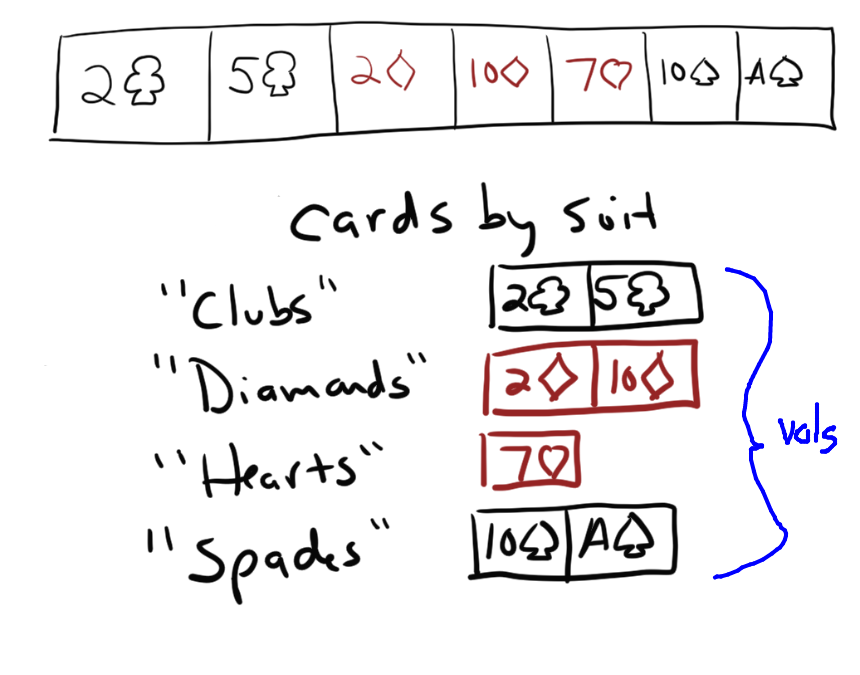 2♧ 5♧ 2♢ 10♢ 7♡ 10♤ A♤
Cards by Suit
"Clubs" 2♧ 5♧
"Diamonds" 2♢ 10♢
vals
"Hearts" 7♡
"Spades" 10♤ A♤